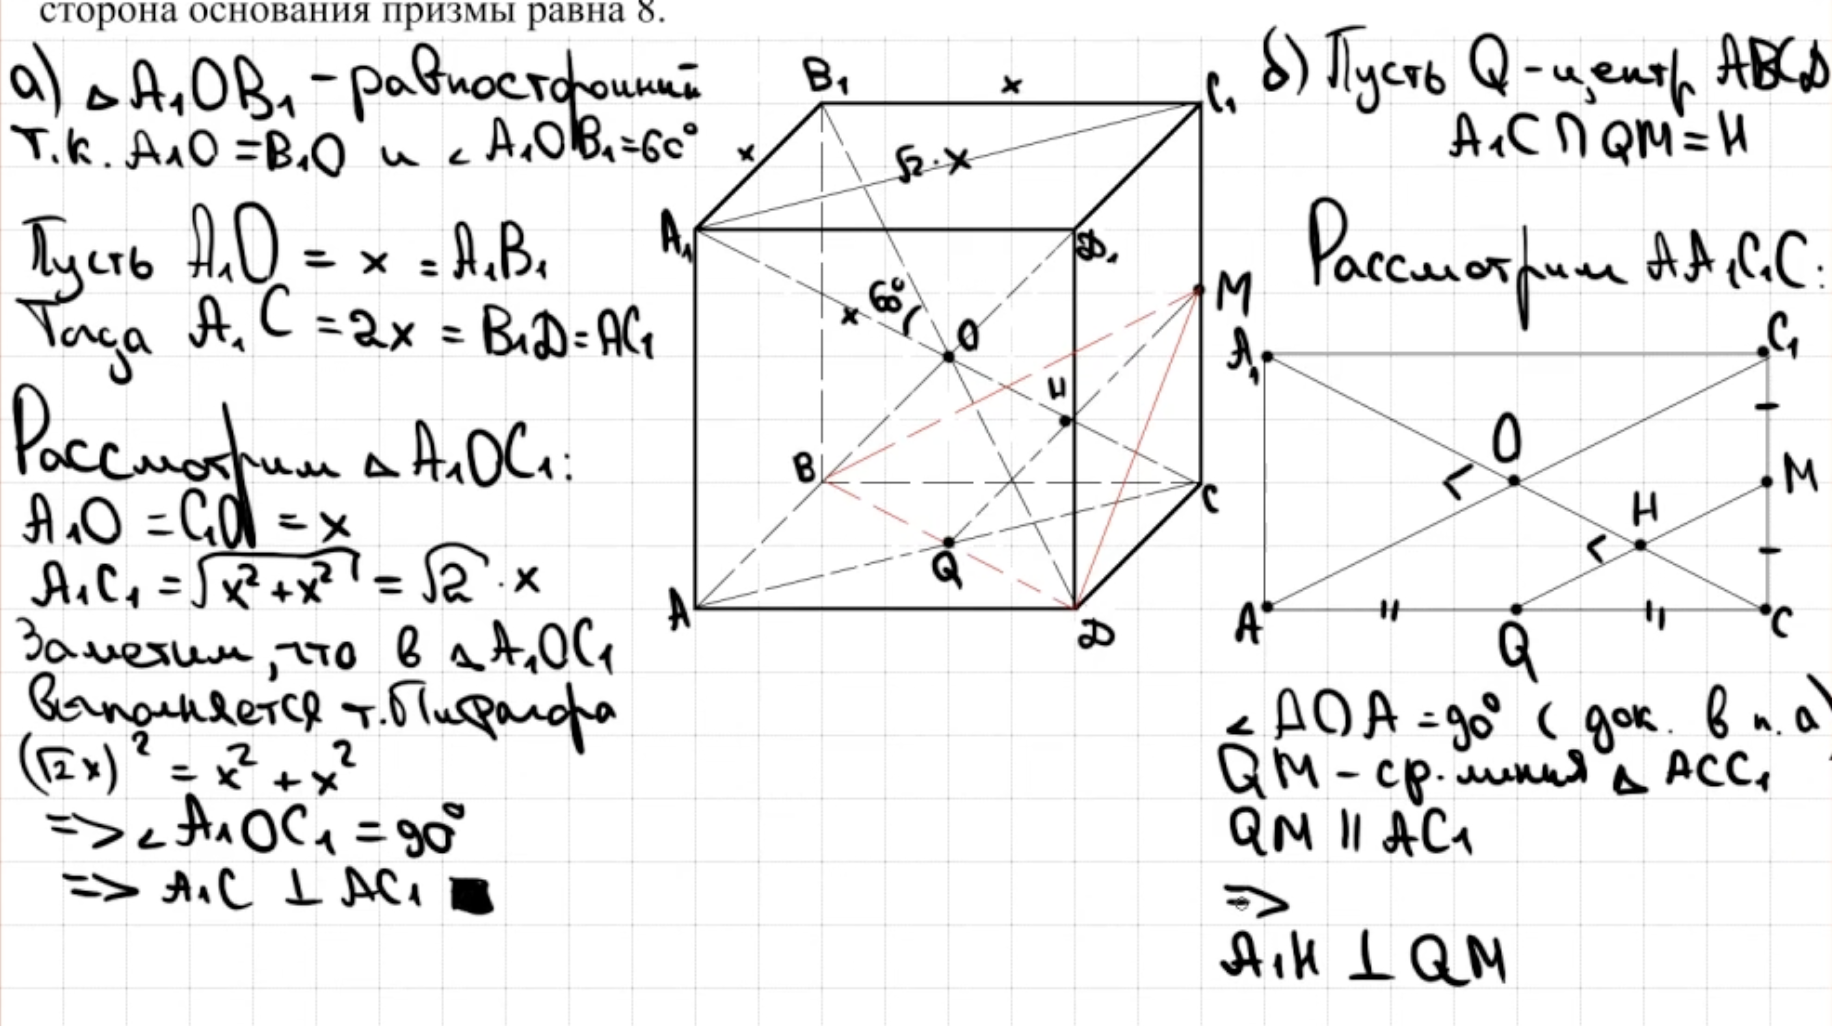 сторона основания призмы равна 8.
а) △A₁OB₁ - равносторонний
т.к. A₁O = B₁O и ∠A₁OB₁ = 60°
Пусть A₁O = x = A₁B₁
Тогда A₁C = 2x = B₁D = AC₁
Рассмотрим △A₁OC₁:
A₁O = C₁O = x
A₁C₁ = √(x² + x²) = √2 · x
Заметим, что в △A₁OC₁
выполняется т. Пифагора
(√2x)² = x² + x²
=> ∠A₁OC₁ = 90°
=> A₁C ⊥ AC₁ ■
B₁
x
C₁
x
√2 · x
A₁
D₁
60°
x
O
M
H
B
C
Q
A
D
б) Пусть Q - центр ABCD
A₁C ∩ QM = H
Рассмотрим AA₁C₁C:
A₁
C₁
O
M
H
A
Q
C
∠AOA = 90° (док. в п. а)
QM - ср. линия △ACC₁
QM || AC₁
=>
A₁H ⊥ QM